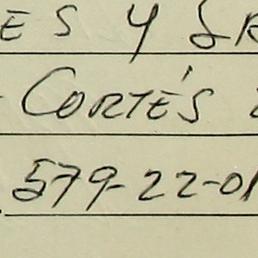 ES Y GR
CORTÉS
579-22-01